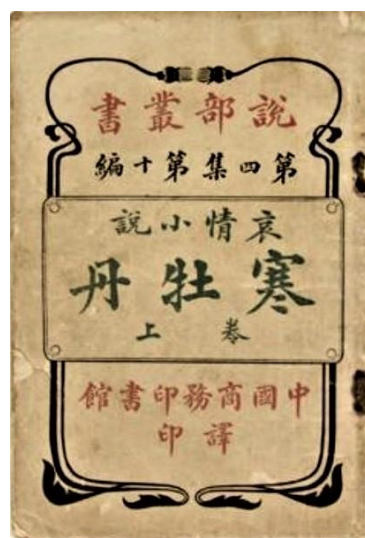 說部叢書
第四集第十編
哀情小說
寒牡丹
卷上
中國商務印書館
譯印